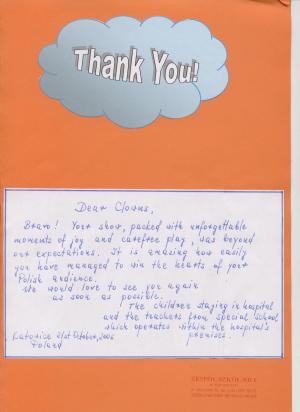 Thank You!
Dear Clowns,
Bravo! Your show, packed with unforgettable
moments of joy and carefree play, was beyond
our expectations. It is amazing how easily
you have managed to win the hearts of your
Polish audience.
We would love to see you again
as soon as possible.
The children staying in hospital
and the teachers from special school
which operates within the hospital's
premises.
Katowice 21st October, 2005
Poland
ZESPÓŁ SZKÓŁ NR 6